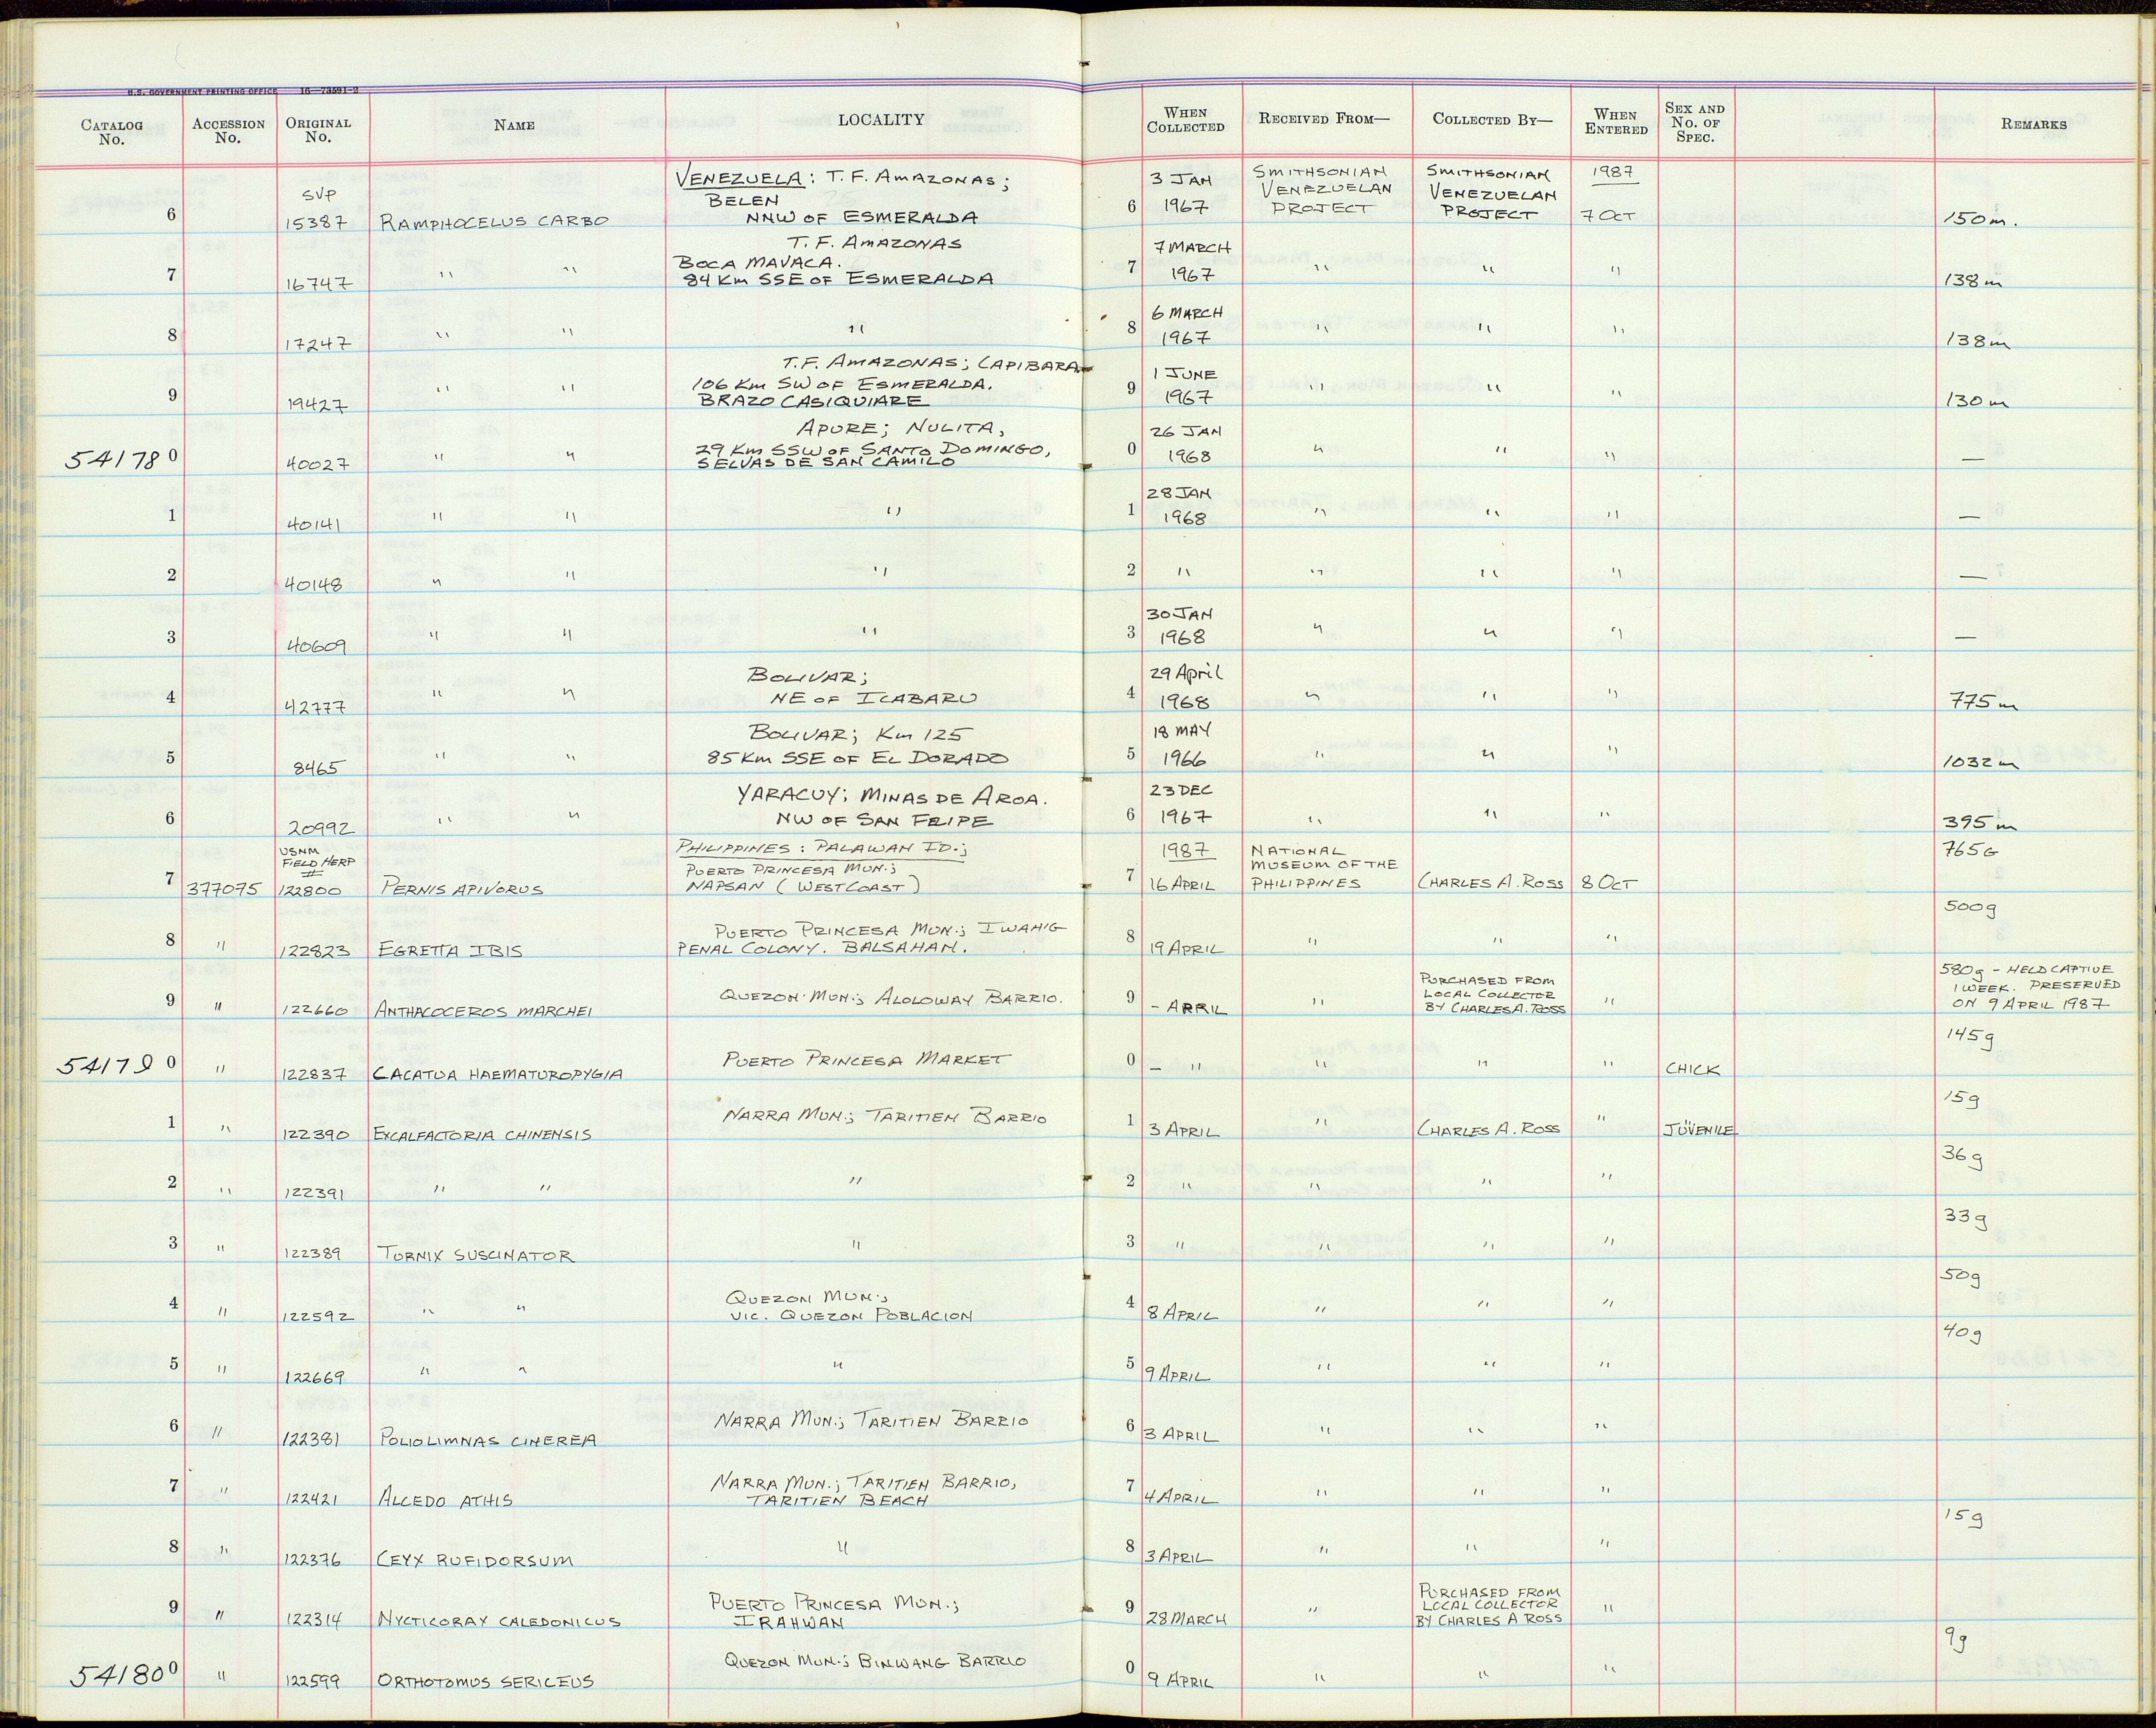 U.S. GOVERNMENT PRINTING OFFICE 16—73591-2
CATALOG No. ACCESSION No. ORIGINAL No. NAME LOCALITY WHEN COLLECTED RECEIVED FROM— COLLECTED BY— WHEN ENTERED SEX AND No. OF SPEC. REMARKS
SVP VENEZUELA: T.F. AMAZONAS; 3 JAN SMITHSONIAN SMITHSONIAN 1987
BELEN VENEZUELAN VENEZUELAN
6 15387 RAMPHOCELUS CARBO NNW OF ESMERALDA 6 1967 PROJECT PROJECT 7 OCT 150m.
T.F. AMAZONAS 7 MARCH
BOCA MAVACA.
7 16747 " " 84 Km SSE OF ESMERALDA 7 1967 " " " 138m
6 MARCH
8 17247 " " " 8 1967 " " " 138m
T.F. AMAZONAS; CAPIBARA 1 JUNE
106 Km SW OF ESMERALDA.
9 19427 " " BRAZO CASIQUIARE 9 1967 " " " 130m
APURE; NULITA, 26 JAN
29 Km SSW OF SANTO DOMINGO,
541780 40027 " " SELVAS DE SAN CAMILO 0 1968 " " " —
28 JAN
1 40141 " " " 1 1968 " " " —
2 40148 " " " 2 " " " " —
30 JAN
3 40609 " " " 3 1968 " " " —
BOLIVAR; 29 April
4 42777 " " NE OF ICABARU 4 1968 " " " 775m
BOLIVAR; Km 125 18 MAY
5 8465 " " 85 Km SSE OF EL DORADO 5 1966 " " " 1032m
YARACUY; MINAS DE AROA. 23 DEC
6 20992 " " NW OF SAN FELIPE 6 1967 " " " 395m
USNM FIELD HERP # PHILIPPINES: PALAWAN ID.; 1987 NATIONAL 765G
PUERTO PRINCESA MUN.; MUSEUM OF THE
7 377075 122800 PERNIS APIVORUS NAPSAN (WEST COAST) 7 16 APRIL PHILIPPINES CHARLES A. ROSS 8 OCT
PUERTO PRINCESA MUN.; IWAHIG 500g
8 " 122823 EGRETTA IBIS PENAL COLONY. BALSAHAN. 8 19 APRIL " " "
PURCHASED FROM 580g - HELD CAPTIVE
QUEZON MUN.; ALOLOWAY BARRIO. LOCAL COLLECTOR 1 WEEK. PRESERVED
9 " 122660 ANTHACOCEROS MARCHEI 9 - APRIL " BY CHARLES A. ROSS " ON 9 APRIL 1987
PUERTO PRINCESA MARKET 145g
541790 " 122837 CACATUA HAEMATUROPYGIA 0 - " " " " CHICK
NARRA MUN.; TARITIEN BARRIO 15g
1 " 122390 EXCALFACTORIA CHINENSIS 1 3 APRIL " CHARLES A. ROSS " JUVENILE
36g
2 " 122391 " " " 2 " " " "
33g
3 " 122389 TURNIX SUSCINATOR " 3 " " " "
QUEZON MUN.; 50g
4 " 122592 " " VIC. QUEZON POBLACION 4 8 APRIL " " "
40g
5 " 122669 " " " 5 9 APRIL " " "
NARRA MUN.; TARITIEN BARRIO
6 " 122381 POLIOLIMNAS CINEREA 6 3 APRIL " " "
NARRA MUN.; TARITIEN BARRIO,
7 " 122421 ALCEDO ATHIS TARITIEN BEACH 7 4 APRIL " " "
15g
8 " 122376 CEYX RUFIDORSUM " 8 3 APRIL " " "
PURCHASED FROM
PUERTO PRINCESA MUN.; LOCAL COLLECTOR
9 " 122314 NYCTICORAX CALEDONICUS IRAHWAN 9 28 MARCH " BY CHARLES A ROSS "
QUEZON MUN.; BINWANG BARRIO 9g
541800 " 122599 ORTHOTOMUS SERICEUS 0 9 APRIL " " "